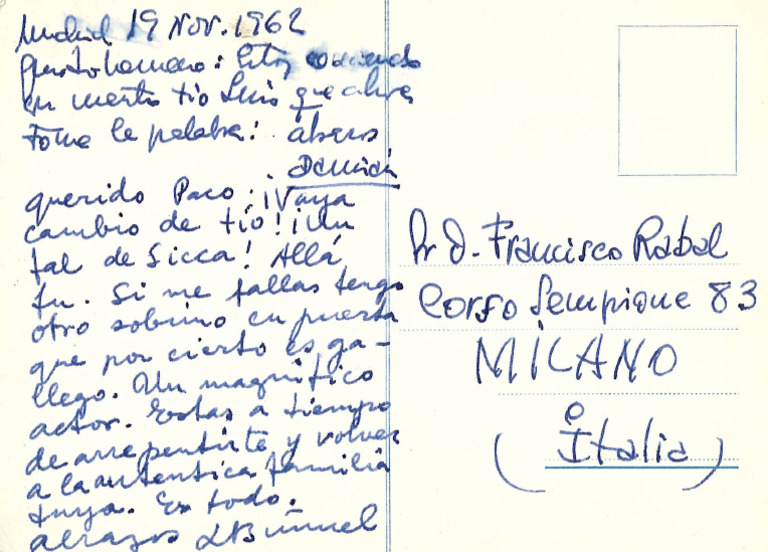 Madrid 19 Nov. 1962
querido hermano: Estoy comiendo
con nuestro tío Luis que ahora
toma la palabra: abrazos
Damián
querido Paco: ¡Vaya
cambio de tío! ¡Un
tal de Sicca! Allá
tu. Si me fallas tengo
otro sobrino en puerta
que por cierto es ga-
llego. Un magnifico
actor. Estas a tiempo
de arrepentirte y volver
a la autentica familia
tuya. Es todo.
abrazos LBuñuel
Sr D. Francisco Rabal
Corso Sempione 83
MILANO
(Italia)